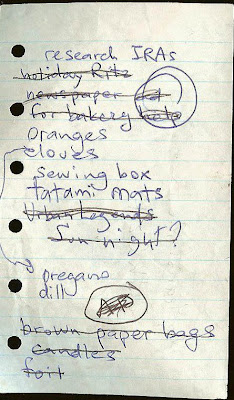 research IRAs
holiday Ritz
newspaper ad
for bakery help
oranges
cloves
sewing box
tatami mats
Urban Legends
Sun night?
oregano
dill
brown paper bags
candles
foil